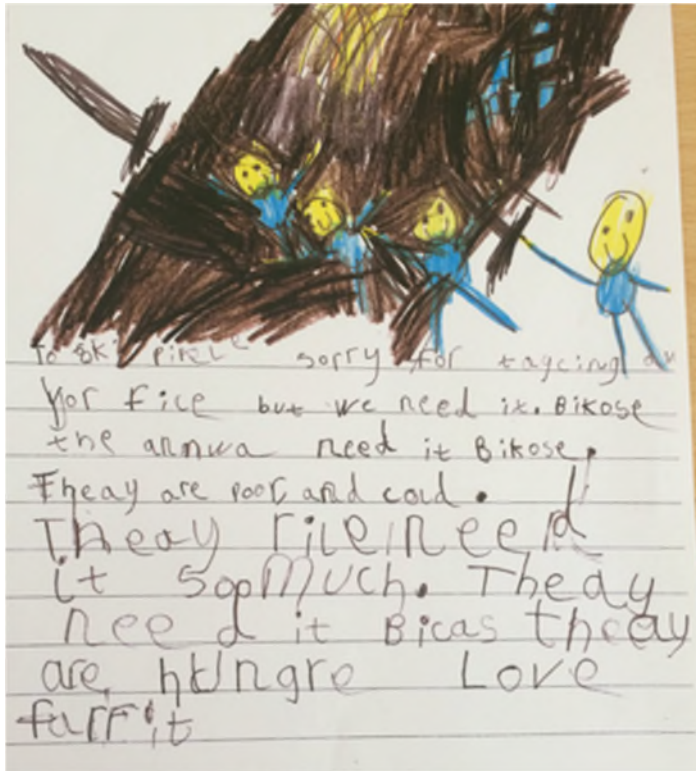 To SKi PiPLe sorry for tagcing
Yor fice but we need it. Bikose
the annwa need it Bikose.
Theay are poor, and coud.
Theay rile need
it SooMUch. Theay
need it Bicas theay
are hUngre Love